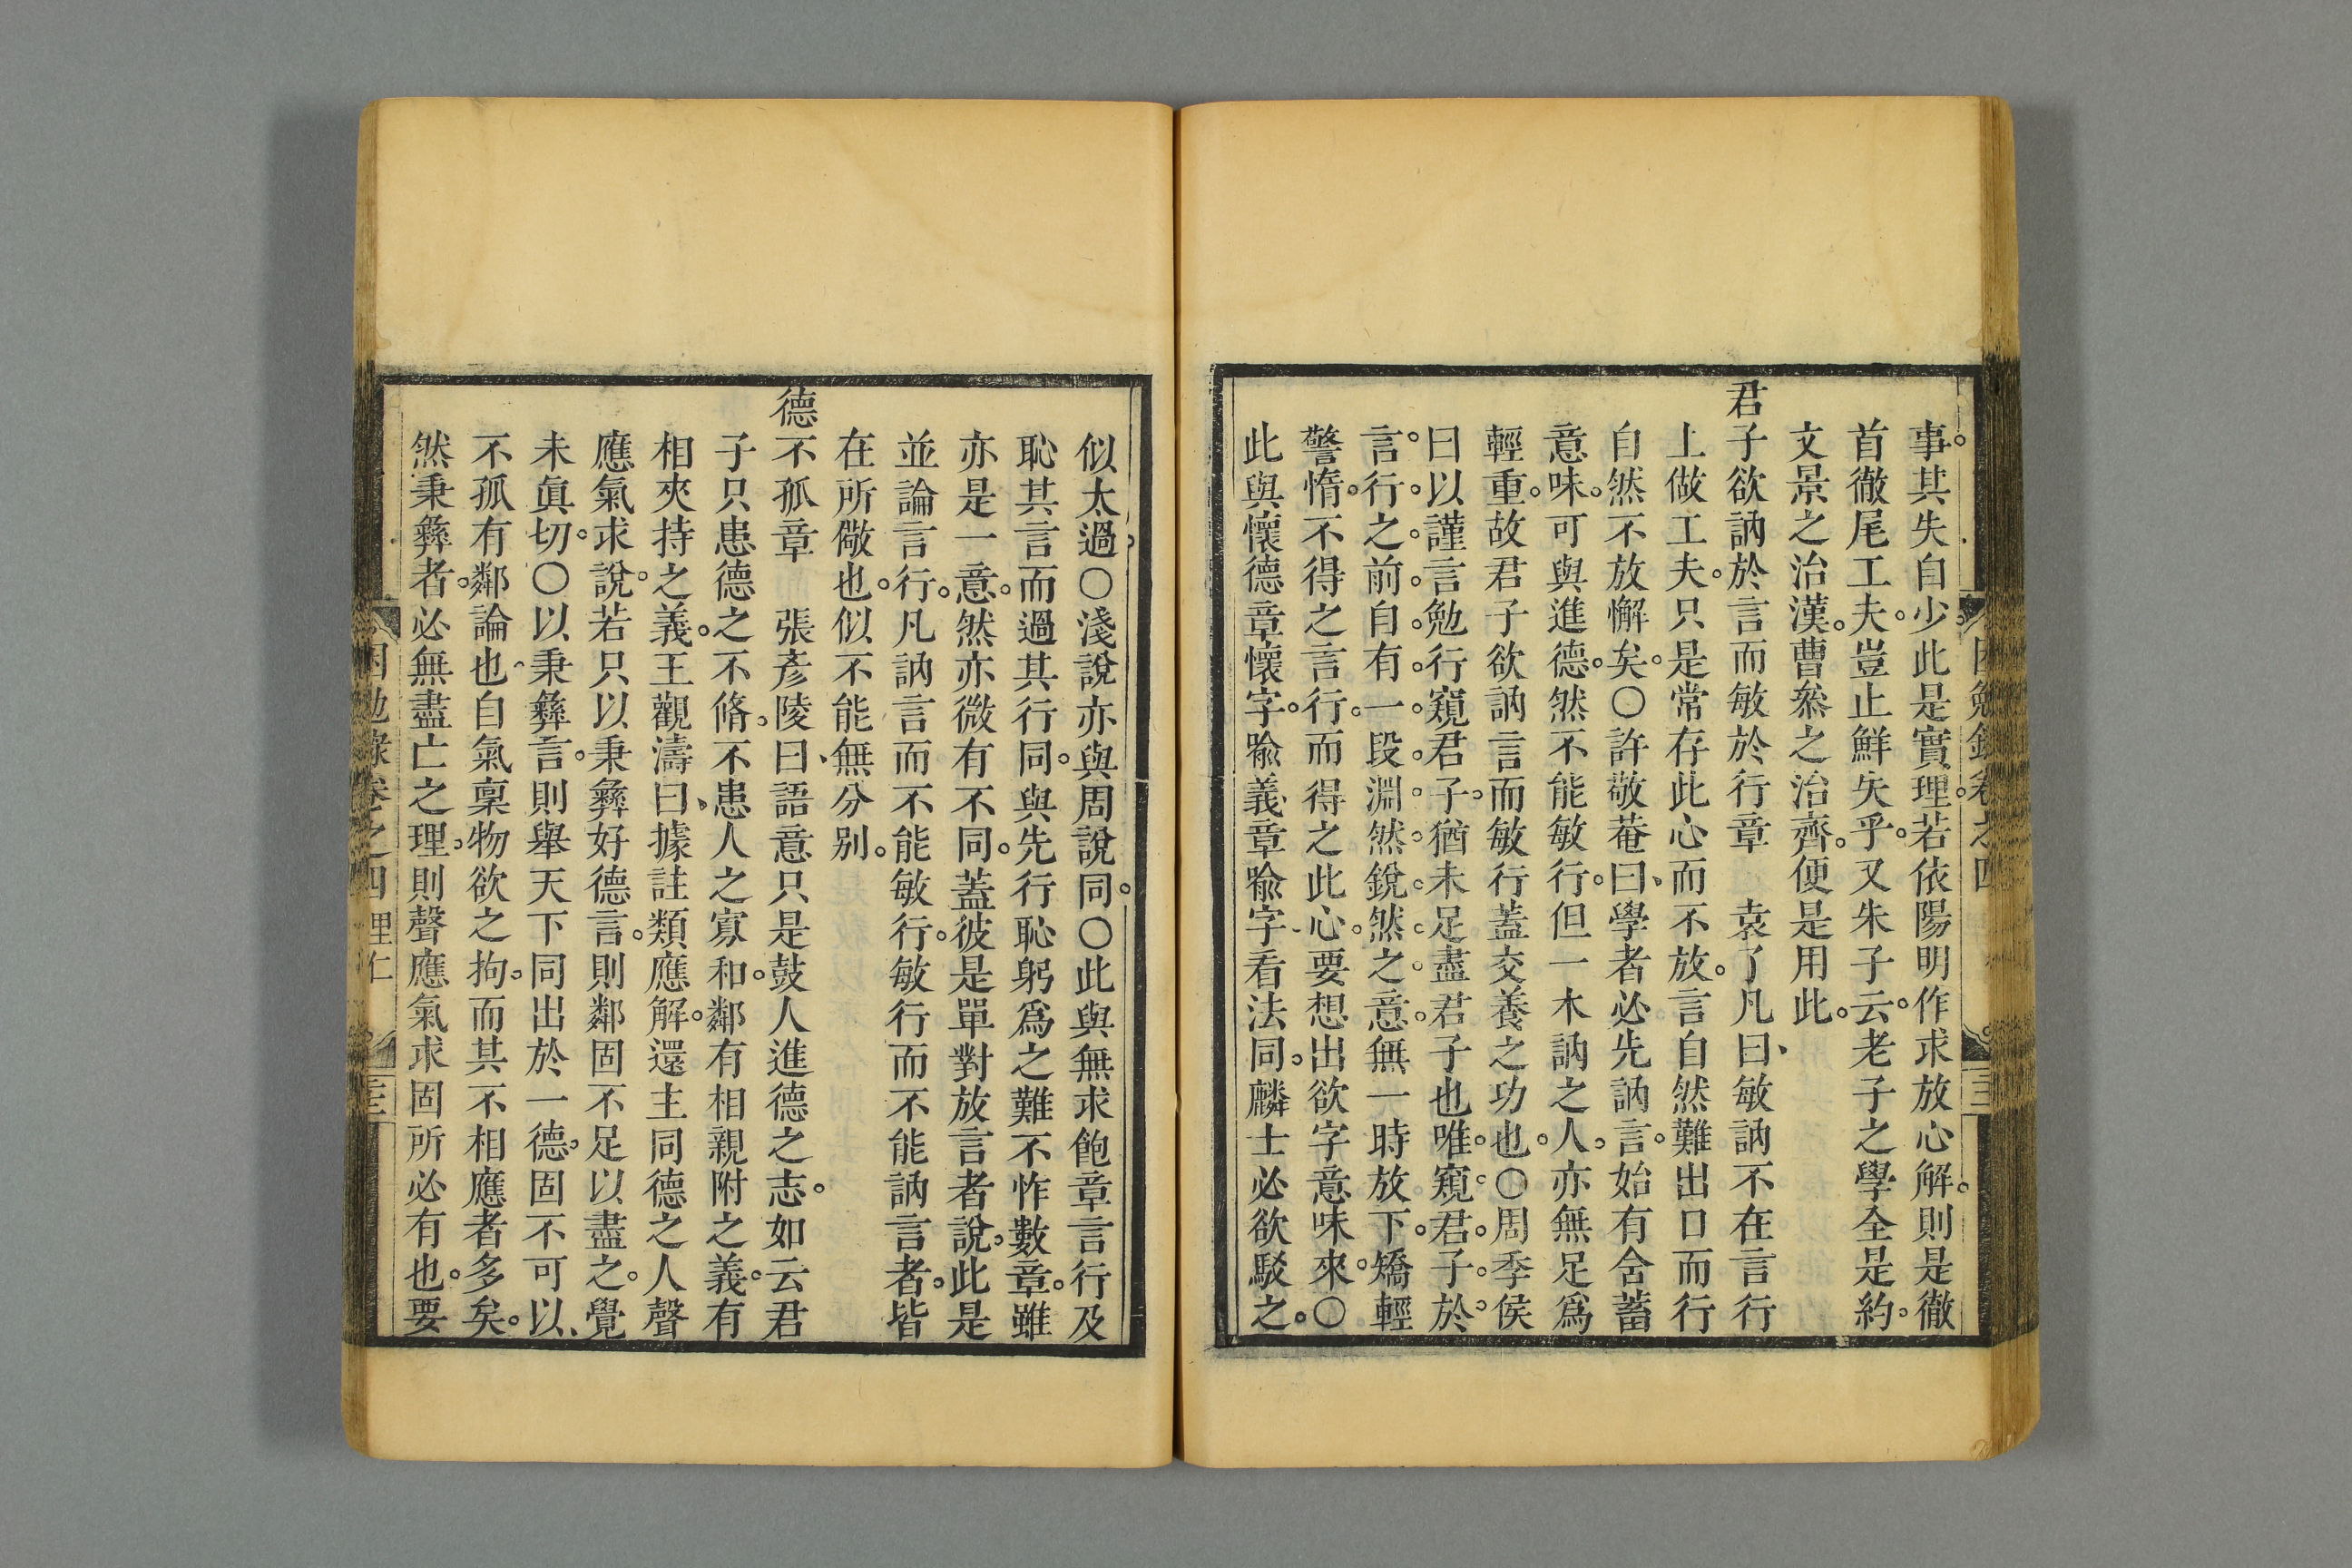 事其失自少此是實理若依陽明作求放心解則是徹
首徹尾工夫豈止鮮矢乎又朱子云老子之學全是約
文景之治漢曹叅之治齊便是用此
君子欲訥於言而敏於行章　袁了凡曰敏訥不在言行
上做工夫只是常存此心而不放言自然難出口而行
自然不放懈矣○許敬菴曰學者必先訥言始有舍蓄
意味可與進德然不能敏行但一木訥之人亦無足爲
輕重故君子欲訥言而敏行蓋交養之功也○周季侯
曰以謹言勉行窺君子猶未足盡君子也唯窺君子於
言行之前自有一段淵然銳然之意無一時放下矯輕
警惰不得之言行而得之此心要想出欲字意味來○
此與懷德章懷字喩義章喩字看法同麟士必欲駁之
似太過○淺說亦與周說同○此與無求飽章言行及
恥其言而過其行同與先行恥躬爲之難不怍數章雖
亦是一意然亦微有不同蓋彼是單對放言者說此是
並論言行凡訥言而不能敏行敏行而不能訥言者皆
在所儆也似不能無分別
德不孤章　張彥陵曰語意只是鼓人進德之志如云君
子只患德之不脩不患人之寡和鄰有相親附之義有
相夾持之義王觀濤曰據註類應解還主同德之人聲
應氣求說若只以秉彝好德言則鄰固不足以盡之覺
未眞切○以秉彝言則舉天下同出於一德固不可以
不孤有鄰論也自氣稟物欲之拘而其不相應者多矣
然秉彝者必無盡亡之理則聲應氣求固所必有也要
困勉錄卷之四 里仁